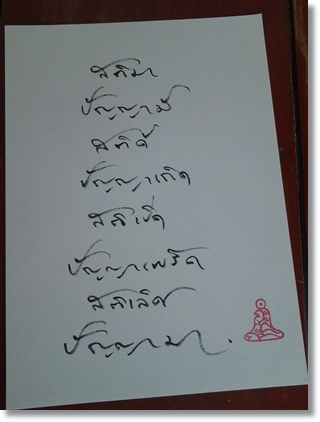 สติมา
ปัญญามี
สติดี
ปัญญาเกิด
สติเปิด
ปัญญาเพริศ
สติเลิศ
ปัญญามา.